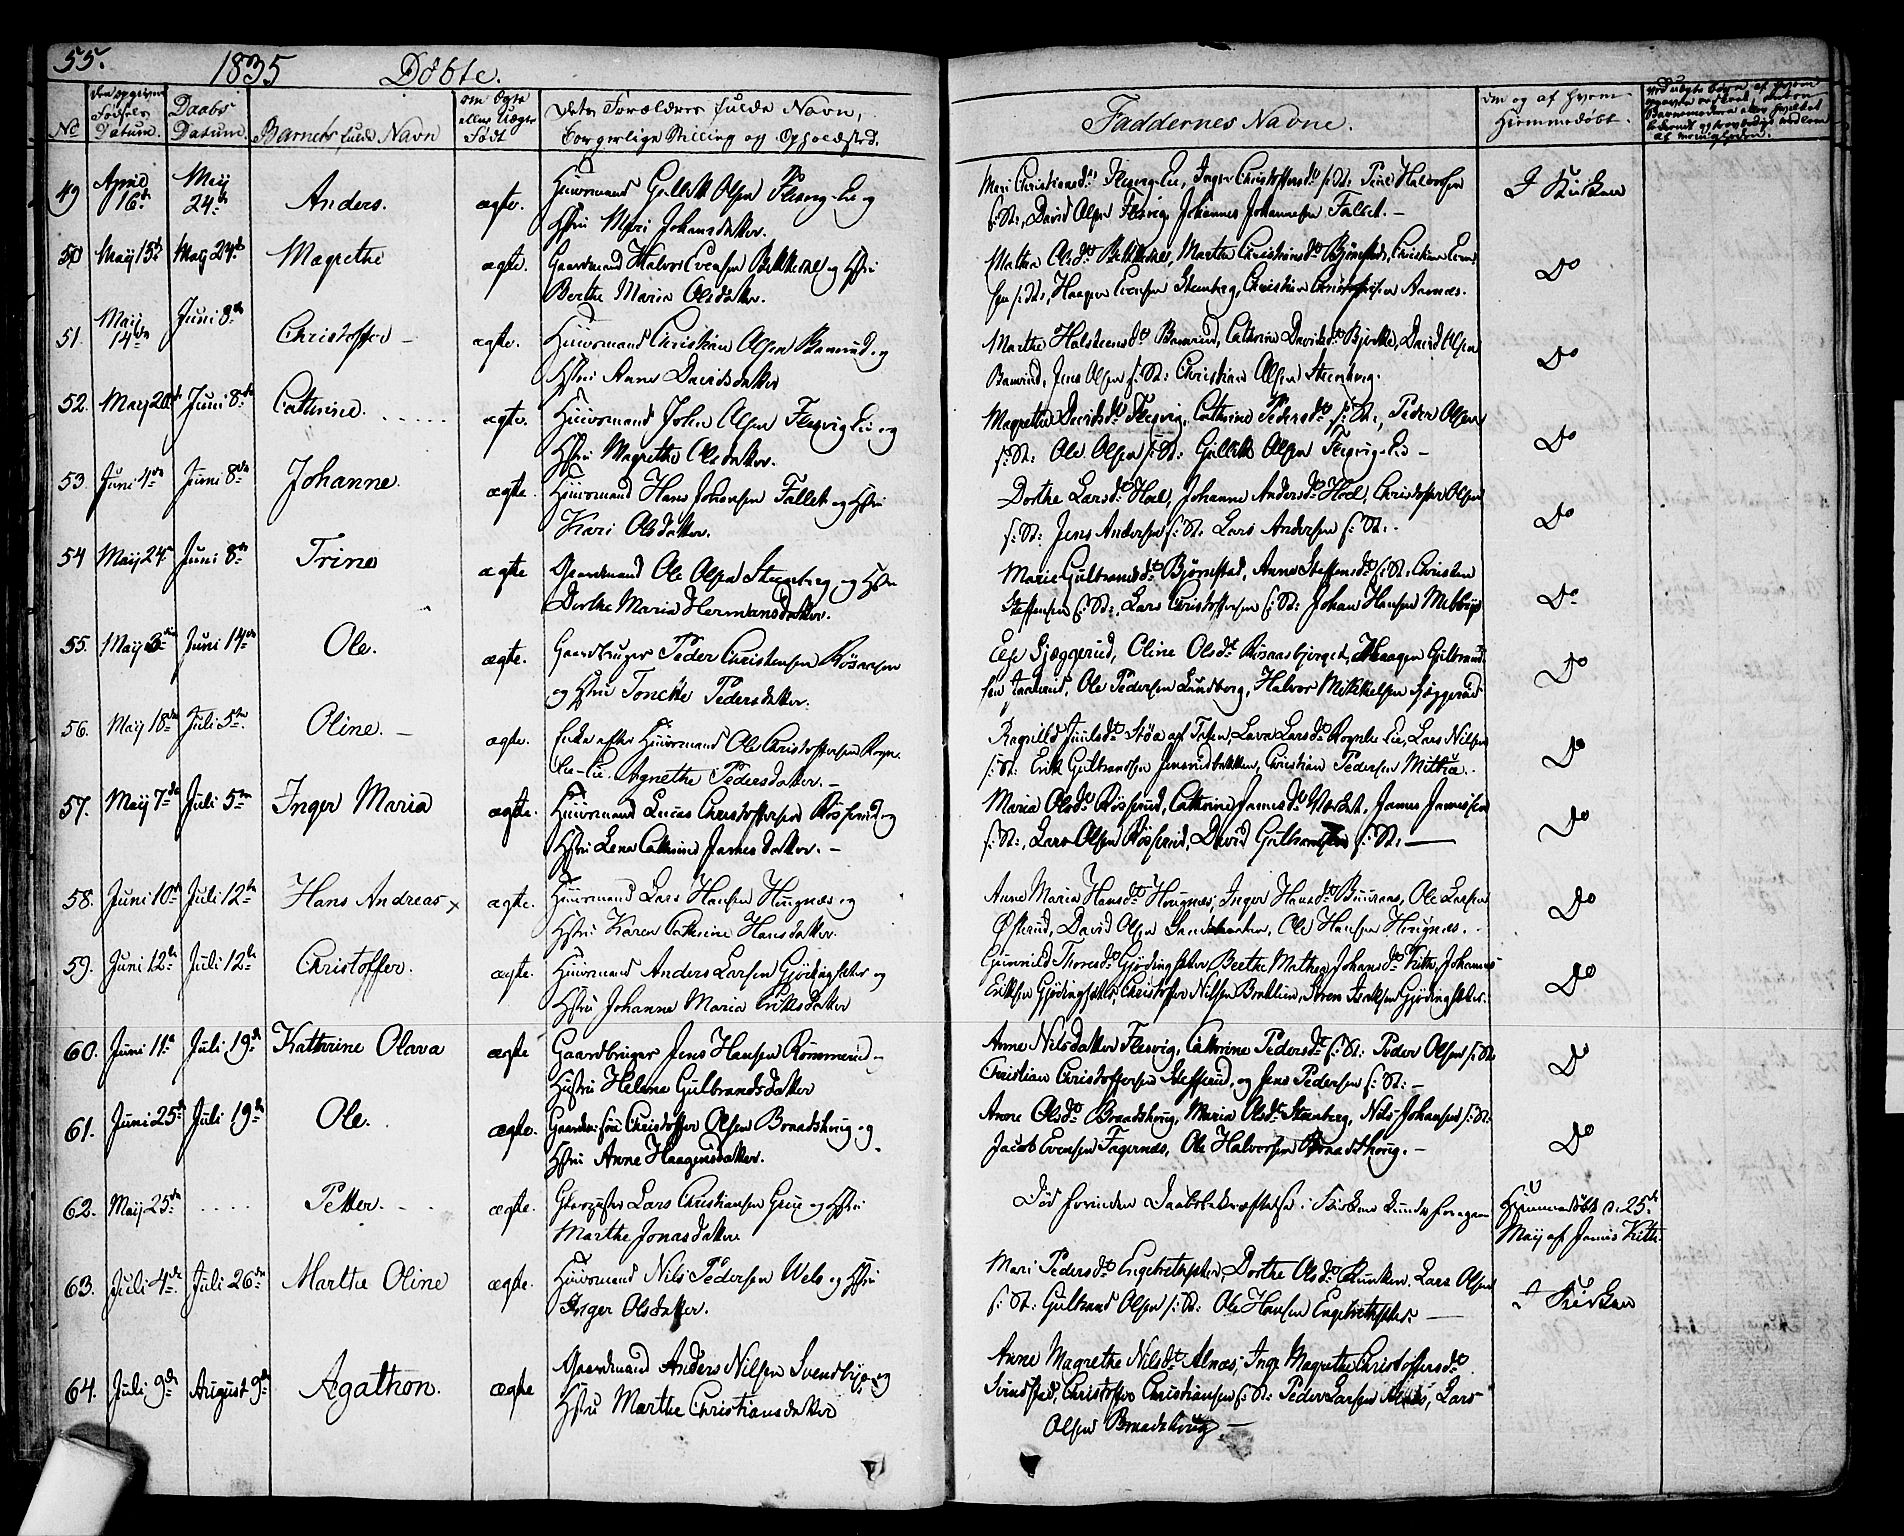 55.
1835 Döbte.
No
den opgivne Fødsels Datum.
Daabs Datum.
Barnets fulde Navn
om Ægte eller Uægte Født
Dets Forældres fulde Navn,
Borgerlige Stilling og Opholdsted.
Faddernes Navne.
om og af Hvem
Hjemmedöbt.
49 April 16de May 24de Anders. ægte.
Huusmand Gulbek Olsen Flesvig-Eie og
Hstru Mari Johansdatter.
Mari Christiansdr Flesvig-Eie, Inger Christoffersdr s: St: Peder Halvorsen
s: St:, David Olsen Flesvig, Johannes Johannesen Fallet. –
I Kirken
50 May 15de May 24de Magrethe ægte.
Gaardmand Halvor Evensen Bekkerne og Hstru
Berthe Maria Olsdatter.
Mathea Olsdr Bekkerne, Marthe Christiansdr Björnstad, Christian Even-
sen s: St:, Haagen Evensen Steenberg, Christian Christophersen Aarnæs.
Do
51. May 14de Juni 8de Christoffer – ægte.
Huusmand Christian Olsen Bamrud og
Hstru Anne Davidsdatter
Marthe Halsteensdr Bamrud, Cathrine Davidsdr Bjerke, David Olsen
Bamrud, Jens Olsen s: St: Christian Olsen Steenberg.
Do
52. May 20de Juni 8de Cathrine. ægte.
Huusmand John Olsen Flesvig Eie og
Hstru Magrethe Olsdatter.
Magrethe Davidsdr Flesvig, Cathrine Pedersdr s: St:, Peder Olsen
s: St: Ole Olsen s: St: Gulbek Olsen Flesvig-Eie –
Do
53. Juni 4de Juni 8de Johanne. ægte.
Huusmand Hans Johansen Fallet og Hstru
Kari Olsdatter.
Dorthe Larsdr Hoel, Johanne Andersdr Hoel, Christoffer Olsen
s: St: Jens Andersen s: St: Lars Andersen s: St:.
Do
54 May 24de Juni 8de Trine ægte
Gaardmand Ole Olsen Steenberg og Hstru
Dorthe Maria Hermansdatter.
Marie Gulbrandsdr Björnstad, Anne Steffensdr s: St: Christen
Steffensen s: St:, Lars Christoffersen s: St: Johan Hansen Melbye
Do
55. May 3die Juni 14de Ole. ægte.
Gaardbruger Peder Christensen Rösaasen
og Hstru Toncke Pedersdatter.
Else Sjæggerud, Oline Olsdr Rosaasbjerget, Haagen Gulbrand-
sen, Ole Pedersen Lundborg, Halvor Mikkelsen Sjæggerud
Do
56. May 18de Juli 5te Oline. – ægte.
Enke efter Huusmand Ole Christoffersen Rogne-
lie-Eie. Agnethe Pedersdatter. –
Ragnild Juulsdr Stöa af Toten, Lava Larsdr Rognlie Eie, Lars Nilsen
s: St: Erik Gulbrandsen Jensrudbakken, Christian Pedersen Mithue.
Do
57. May 7de Juli 5te Inger Maria ægte.
Huusmand Lucas Christoffersen Rösserud og
Hstru Lene Cathrine Jamesdatter. –
Maria Olsdr Rösserud, Cathrine Jamesdr Værket, James Jamesen
s: St:, Lars Olsen Rösserud, David Gulbrandsen s: St: –
Do
58. Juni 10de Juli 12te Hans Andreas x ægte.
Huusmand Lars Hansen Hougnæs og
Hstru Karen Cathrine Hansdatter.
Anne Maria Hansdr Hougnæs, Inger Hansdr Buuraas, Ole Larsen
Østerud, David Olsen, Ole Hansen Hougnæs.
Do
59. Juni 12te Juli 12te Christoffer. ægte.
Huusmand Anders Larsen Gjödingsæter og
Hstru Johanne Maria Eriksdatter
Gunnild Thoresdr Gjödingsæter, Berthe Mathea Johansdr Kith, Johannes
Eriksen Gjödingsæter, Christoffer Nilsen Breklien, Sören Isaksen Gjödingsæter.
Do
60. Juni 11te Juli 19de Kathrine Olava ægte
Gaardbruger Jens Hansen Rommerud –
Hustru Helene Gulbrandsdatter
Anne Nilsdatter Flesvig, Cathrine Pedersdr s: St: Peder Olsen s: St:
Christian Christoffersen Stefferud, og Jens Pedersen s: St: –
Do
61. Juni 25de Juli 19de Ole. ægte.
Christoffer Olsen Braadshoug og
Hstru Anne Haagensdatter.
Anne Olsdr Braadshoug, Maria Olsdr Steenberg, Nils Johansen s: St:
Jacob Evensen Fagernæs, Ole Halvorsen Braadshoug. –
Do
62. May 25de .... Petter. ægte.
Glaspuster Lars Christiansen Grue og Hstru
Marthe Jonasdatter.
Död forinden Daabsbekræftelse i Kirken kunde foregaae
Hjemmedöbt d. 25de
May af James Kith.
63. Juli 4de Juli 26de Marthe Oline ægte.
Huusmand Nils Pedersen Wels og Hstru
Inger Olsdatter.
Mari Pedersdr Engebretsæter, Dorthe Olsdr Runken, Lars Olsen
s: St: Gulbrand Olsen s: St: Ole Hansen Engebretsæter –
I Kirken
64. Juli 9de August 9de Agathon. ægte
Gaardmand Anders Nilsen Svendbye og
Hstru Marthe Christiansdatter
Anne Magrethe Nilsdr Alnæs, Inge Magrethe Christoffersdr
Svindstad, Christoffer Christiansen s: St: Peder Larsen Alnæs, Lars
Olsen Braadshoug –